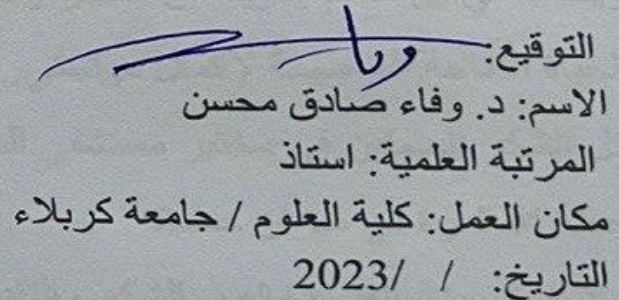 التوقيع:
الاسم: د. وفاء صادق محسن
المرتبة العلمية: استاذ
مكان العمل: كلية العلوم / جامعة كربلاء
التاريخ: / /2023